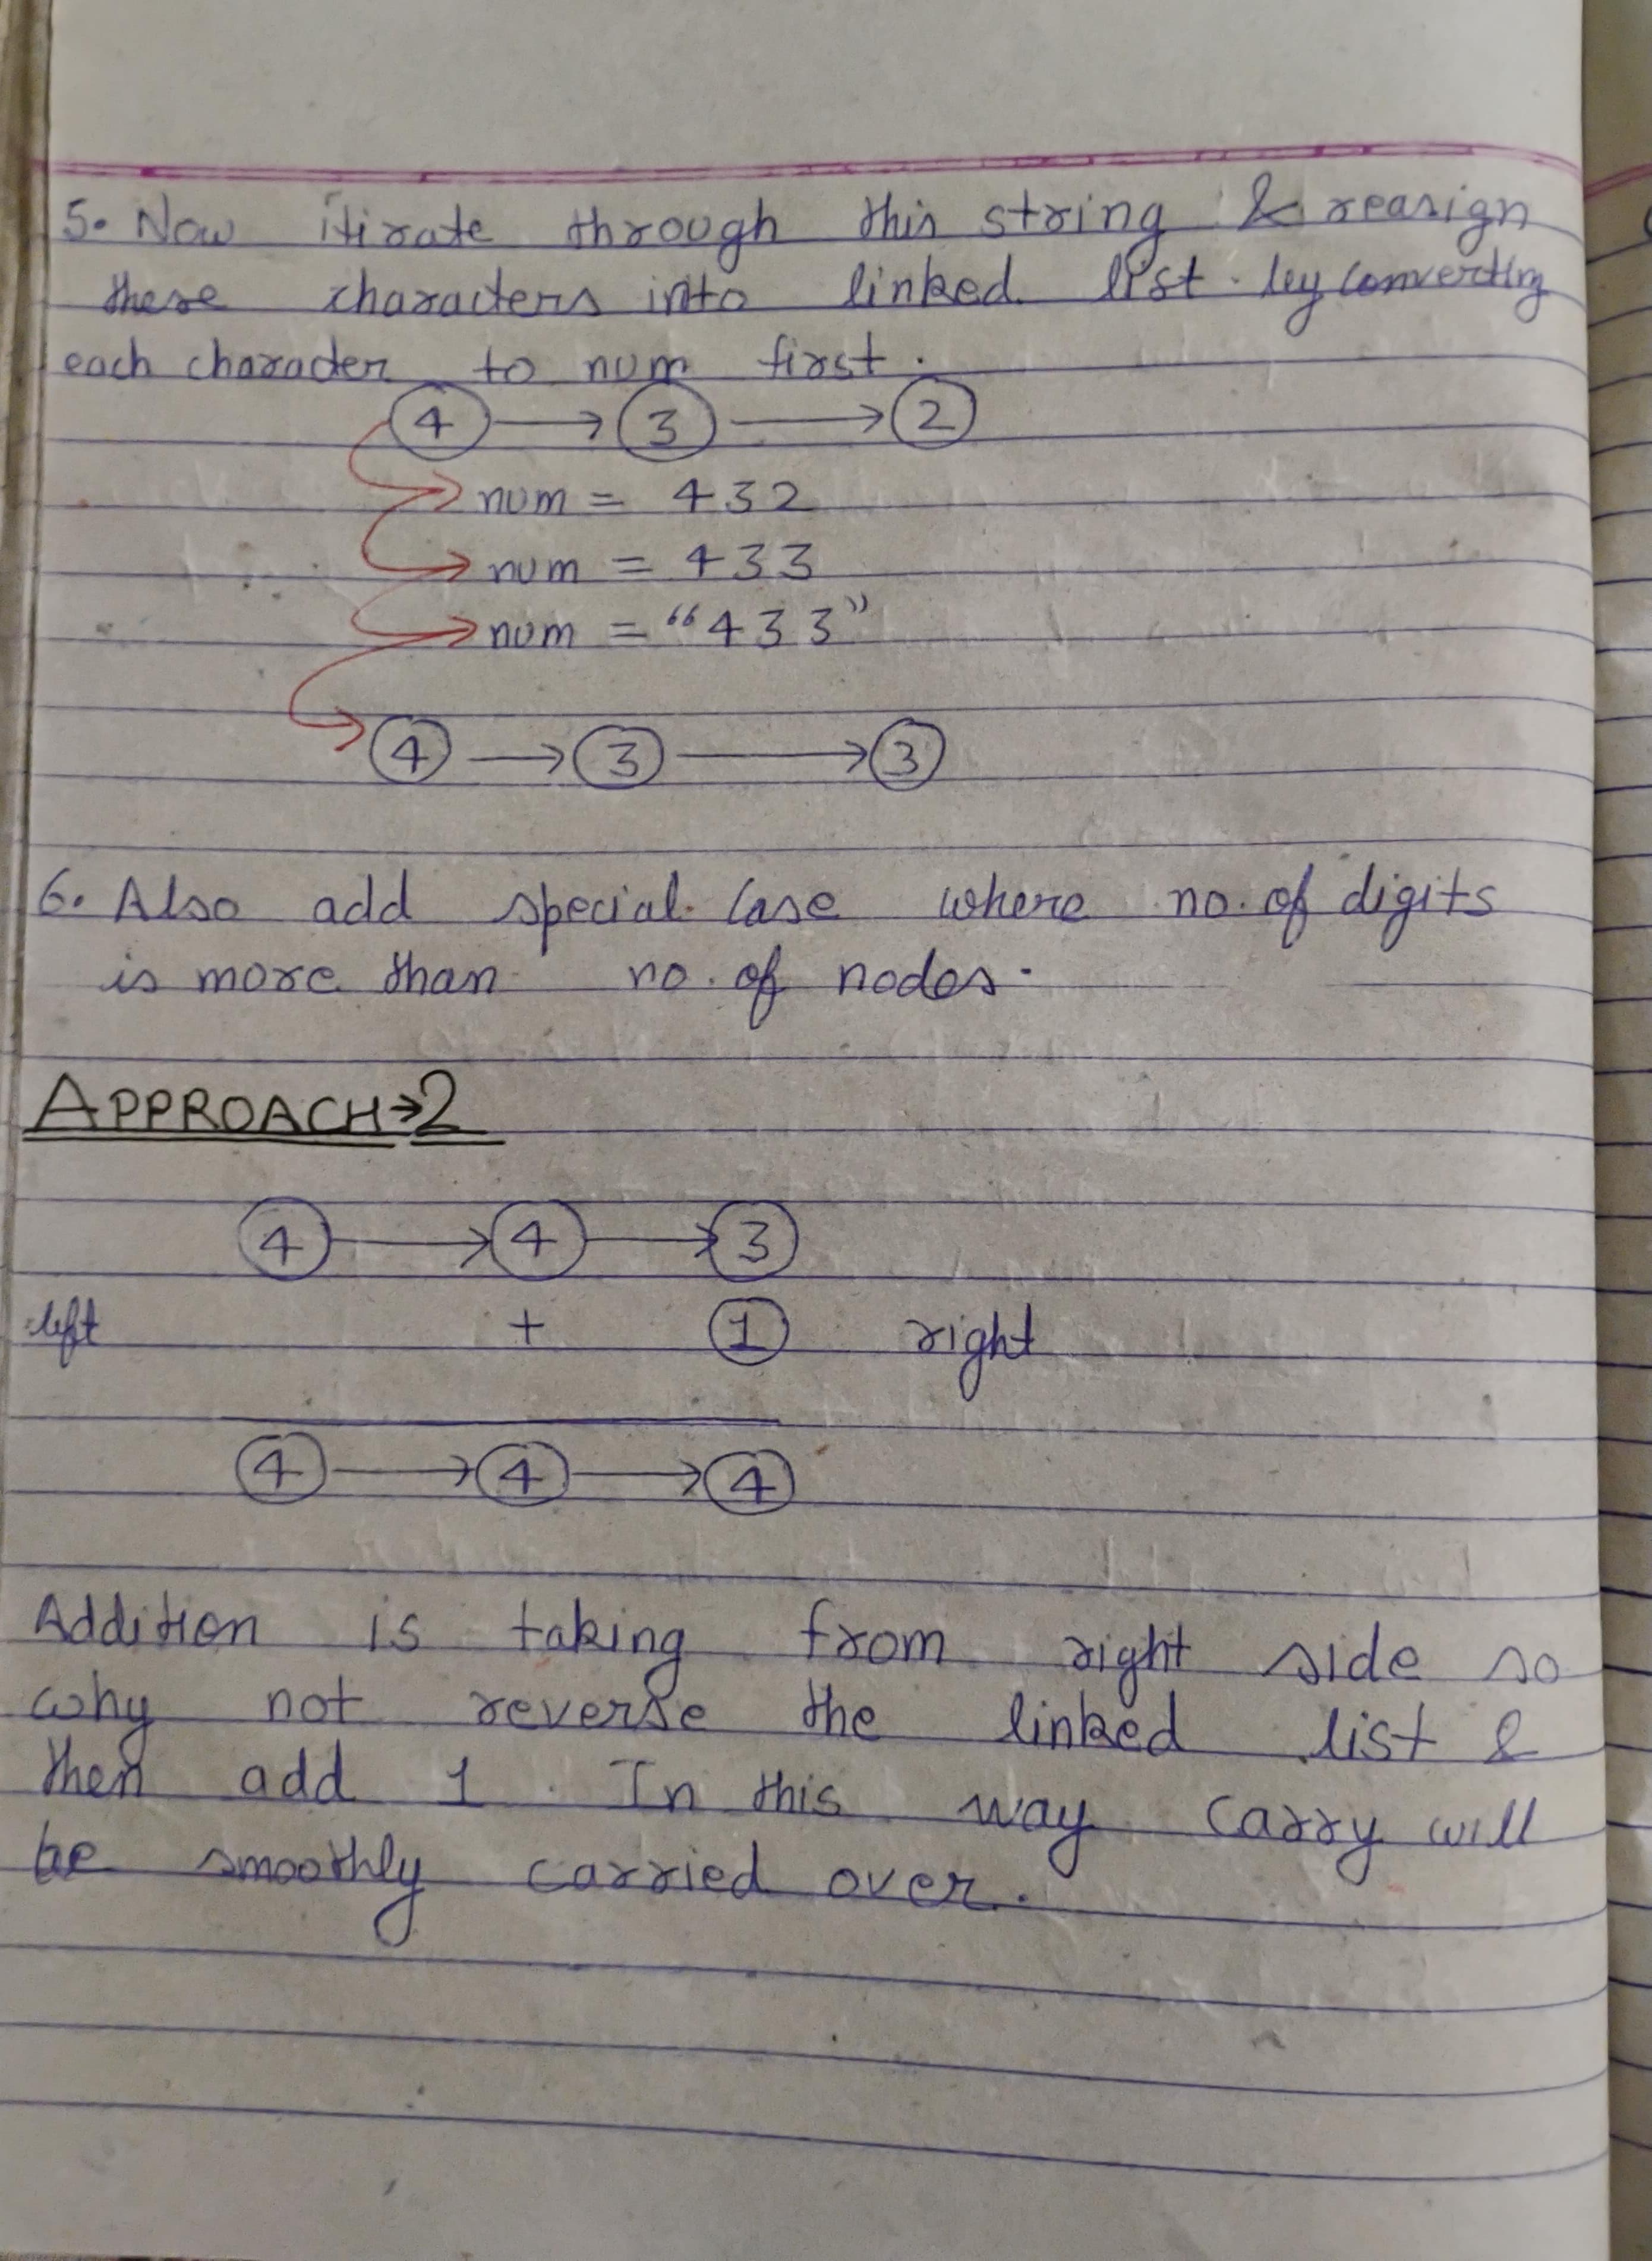 5. Now itirate through this string & reasign
these characters into linked list by converting
each character to num first.
4 → 3 → 2
num = 432
num = 433
num = "433"
4 → 3 → 3
6. Also add special case where no. of digits
is more than no. of nodes.
APPROACH→2
4 → 4 → 3
left + 1 right
4 → 4 → 4
Addition is taking from right side so
why not reverse the linked list &
then add 1. In this way carry will
be smoothly carried over.